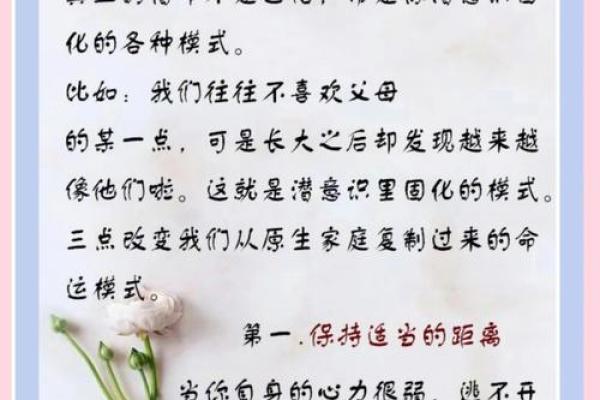 化的各种模式。
比如：我们往往不喜欢父母
的某一点，可是长大之后却发现越来越
像他们啦。这就是潜意识里固化的模式。
三点改变我们从原生家庭复制过来的命
运模式。
第一.保持适当的距离
当你自身的心力很弱，逃不开